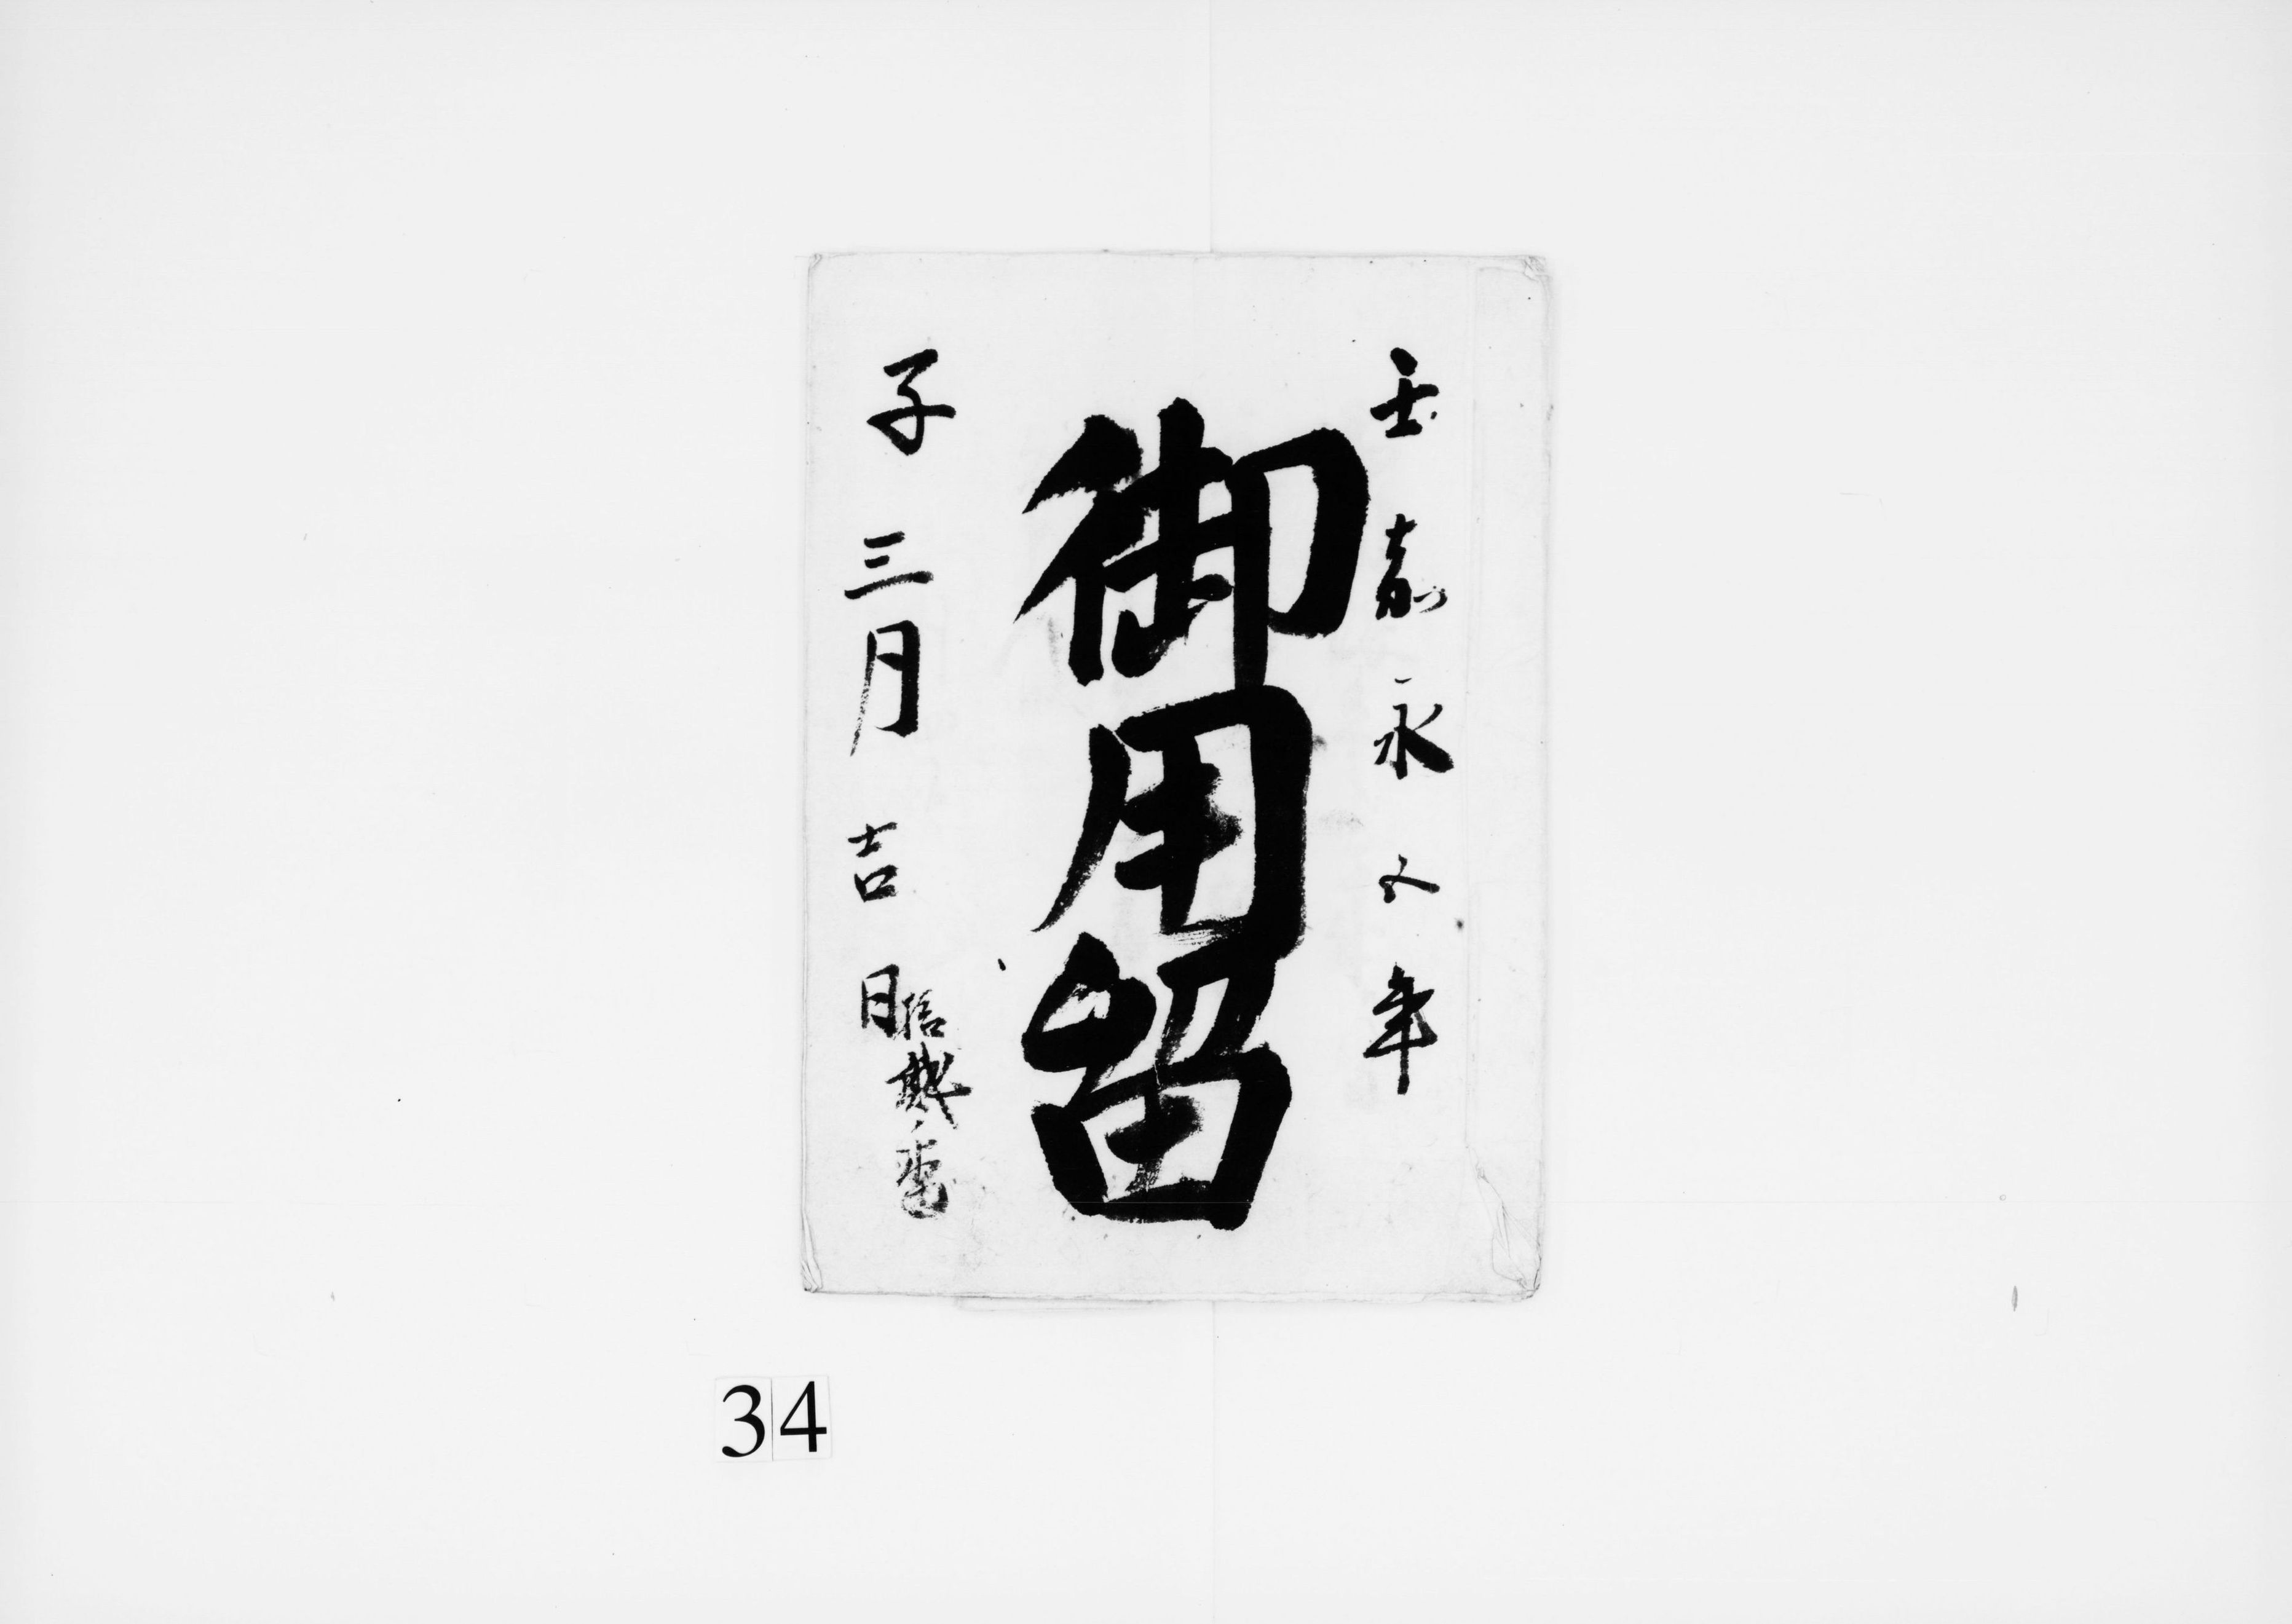 壬嘉永五年
御用留
子三月吉日
34